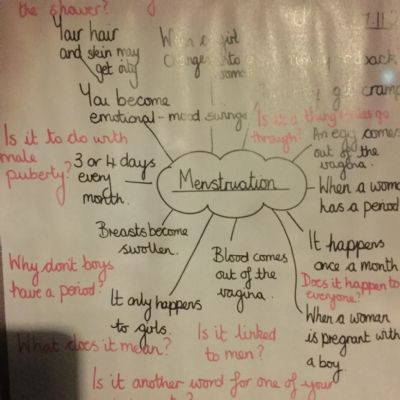 the shower?
Your hair
and skin may
get oily
When a girl
changes into
You become
emotional - mood swings
back
cramp
Is it a thing
go
through?
An egg comes
out of the
vagina.
Is it to do with
male
puberty?
3 or 4 days
every
month.
Menstruation
When a woma
has a period
Breasts become
swollen.
Blood comes
out of the
vagina.
It happens
once a month
Does it happen to
everyone?
Why don't boys
have a period?
It only happens
to girls.
When a woman
is pregnant with
a boy.
Is it linked
to men?
What does it mean?
Is it another word for one of your